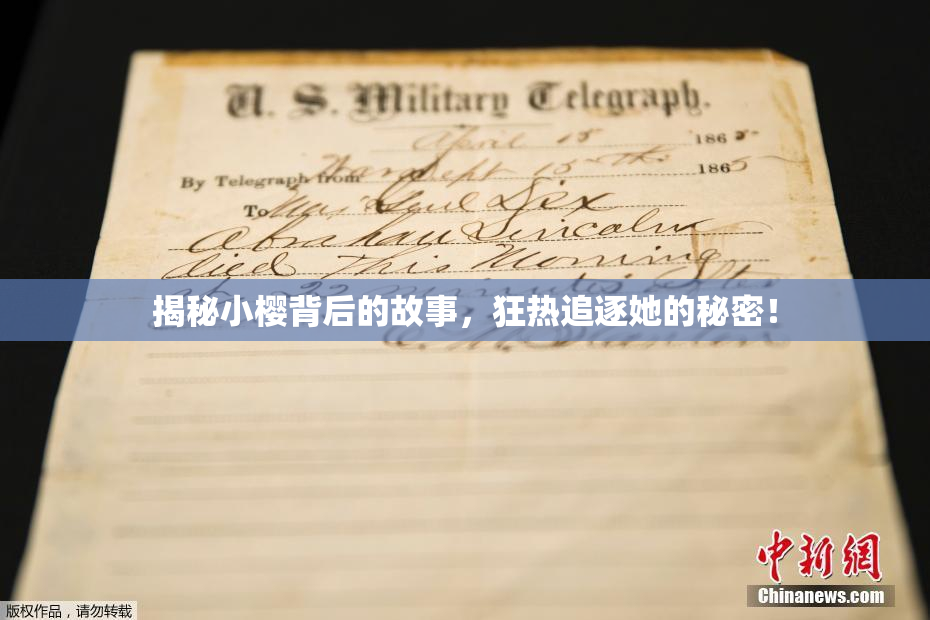 U. S. Military Telegraph.
April 15 1865
By Telegraph from War Dept 15th 1865
To Maj Genl Dix
Abraham Lincoln
died This Morning
at 22 minutes after
揭秘小樱背后的故事，狂热追逐她的秘密！
E. M. Stanton
中新网
Chinanews.com
版权作品，请勿转载